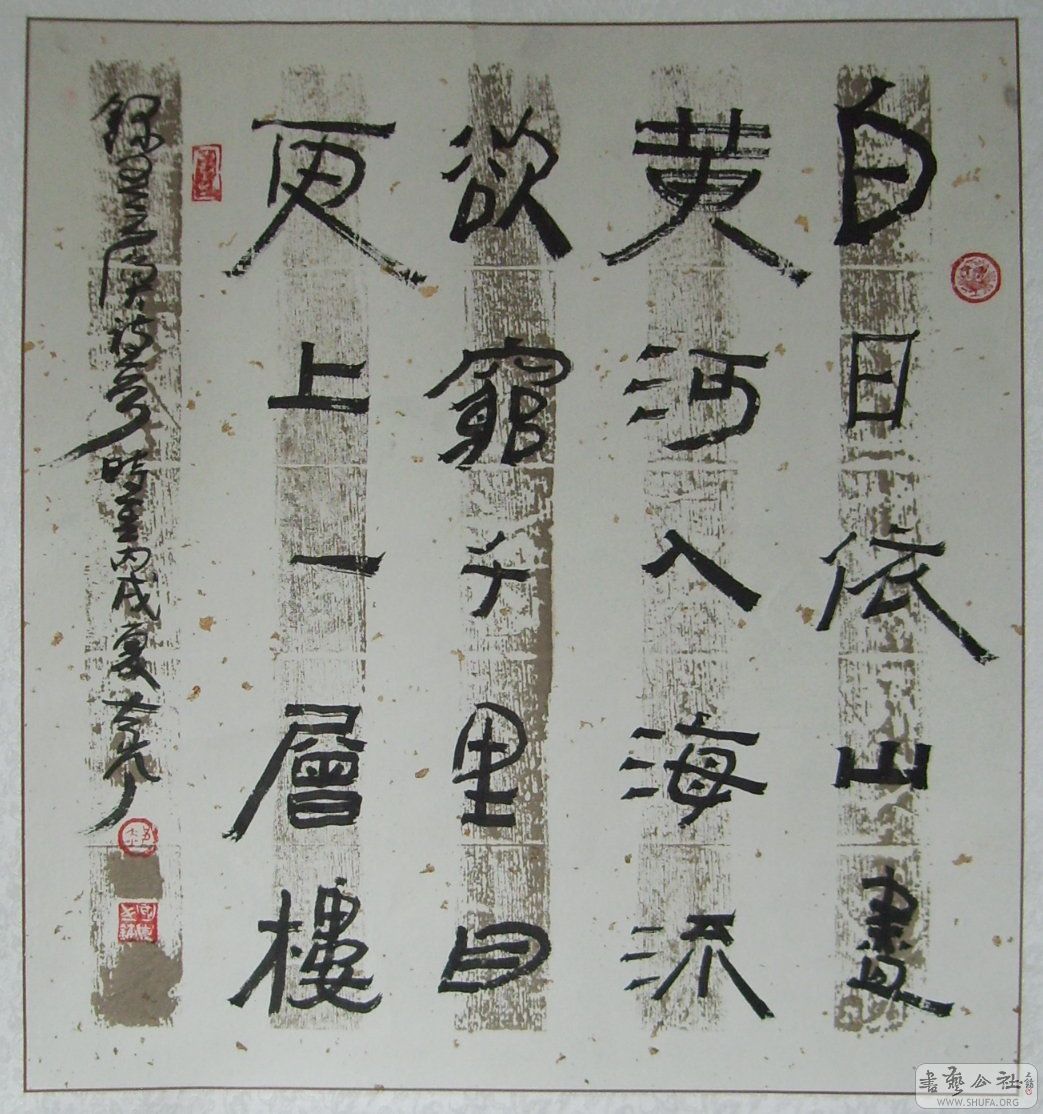 白日依山盡
黄河入海流
欲窮千里目
更上一層樓
錄王之渙詩意 時在丙戌夏
書藝公社
WWW.SHUFA.ORG